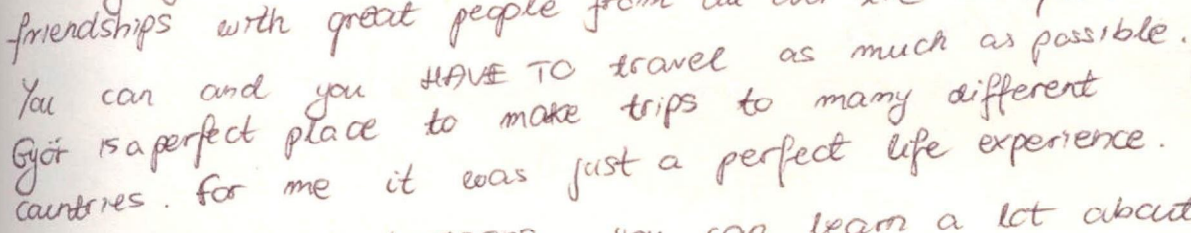 friendships with great people from all
You can and you HAVE TO travel as much as possible.
Győr is a perfect place to make trips to many different
countries. for me it was just a perfect life experience.
you can learn a lot about